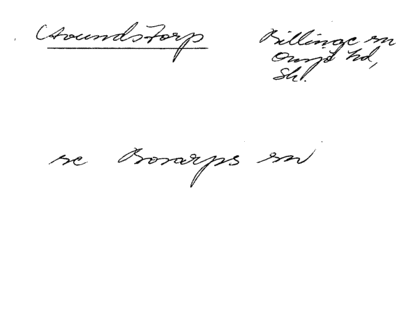 Billinge sn
Onsjö hd,
Sk.
se Bosarps sn